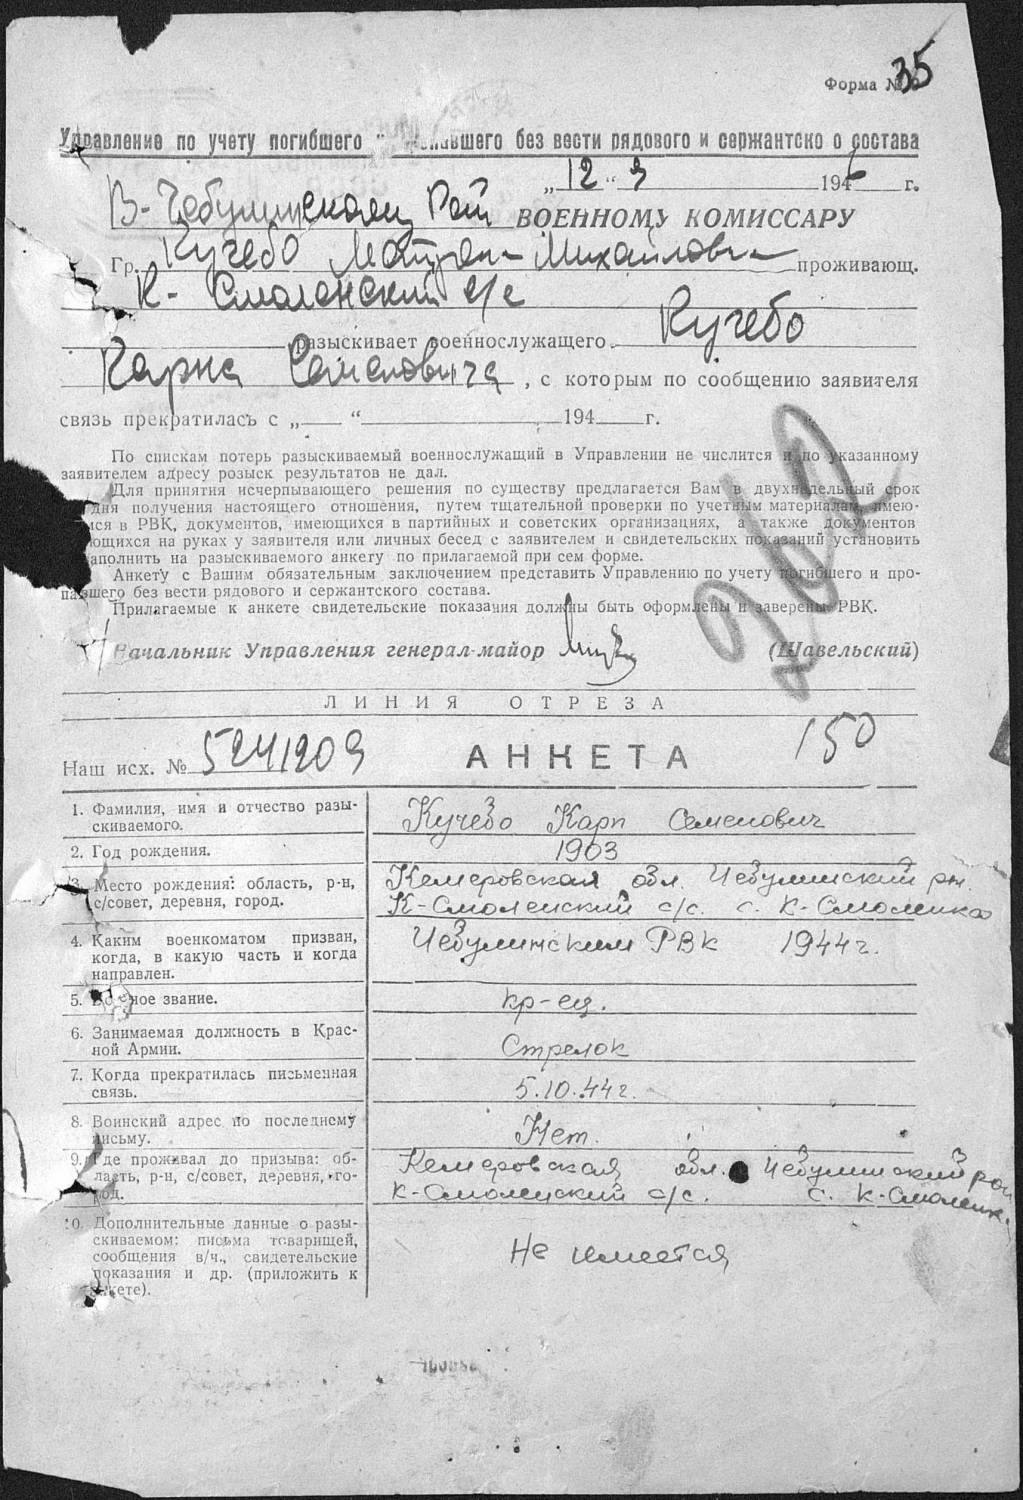 Форма №
35
Управление по учету погибшего вшего без вести рядового и сержантско о состава
„ 12 “ 9 1946 г.
В-Чебулинскому Рай ВОЕННОМУ КОМИССАРУ
Гр. Кучебо Михайловна проживающ.
К- Смоленский с/с
разыскивает военнослужащего Кучебо
Карпа Семеновича , с которым по сообщению заявителя
связь прекратилась с „ “ 194 г.
По спискам потерь разыскиваемый военнослужащий в Управлении не числится и по указанному
заявителем адресу розыск результатов не дал.
Для принятия исчерпывающего решения по существу предлагается Вам в двухнедельный срок
дня получения настоящего отношения, путем тщательной проверки по учетным материалам, имею-
мся в РВК, документов, имеющихся в партийных и советских организациях, а также документов
ющихся на руках у заявителя или личных бесед с заявителем и свидетельских показаний установить
аполнить на разыскиваемого анкету по прилагаемой при сем форме.
Анкету с Вашим обязательным заключением представить Управлению по учету погибшего и про-
павшего без вести рядового и сержантского состава.
Прилагаемые к анкете свидетельские показания должны быть оформлены и заверены РВК.
262
Начальник Управления генерал-майор (Шавельский)
ЛИНИЯ ОТРЕЗА
Наш исх. № 5241209 АНКЕТА 150
1. Фамилия, имя и отчество разы-
скиваемого.
Кучебо Карп Семенович
2. Год рождения.
1903
3. Место рождения: область, р-н,
с/совет, деревня, город.
Кемеровская обл. Чебулинский рн.
К-Смоленский с/с. с. К-Смоленка
4. Каким военкоматом призван,
когда, в какую часть и когда
направлен.
Чебулинским РВК 1944г.
5. Во ное звание.
кр-ец.
6. Занимаемая должность в Крас-
ной Армии.
Стрелок
7. Когда прекратилась письменная
связь.
5.10.44г.
8. Воинский адрес по последнему
письму.
Нет.
9. Где проживал до призыва: об-
ласть, р-н, с/совет, деревня, го-
род.
Кемеровская обл. Чебулинский рон
К-Смоленский с/с. с. К-Смоленк.
10. Дополнительные данные о разы-
скиваемом: письма товарищей,
сообщения в/ч., свидетельские
показания и др. (приложить к
анкете).
Не имеется